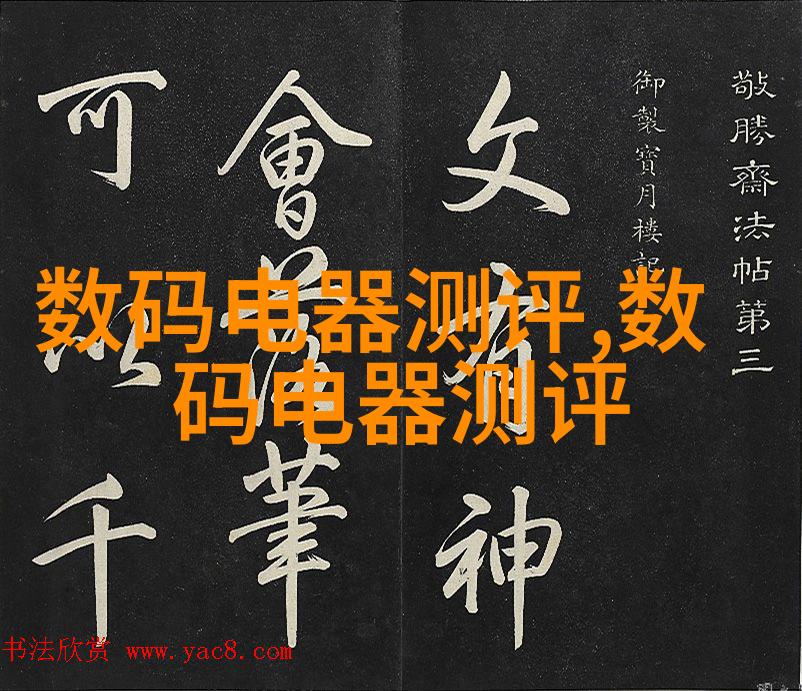 敬勝齋法帖第三
御製寶月樓記
文有神
會落筆
可以千
数码电器测评,数
码电器测评
书法欣赏 www.yac8.com